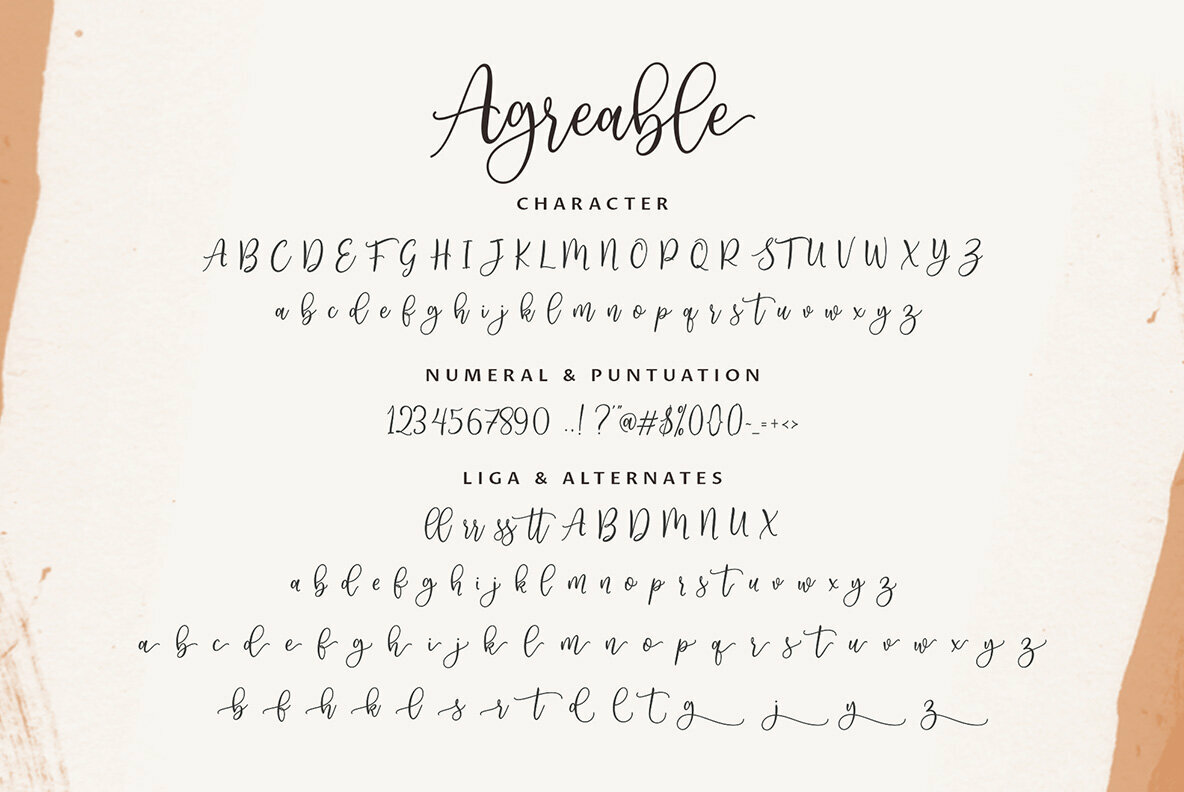 Agreable
CHARACTER
A B C D E F G H I J K L M N O P Q R S T U V W X Y Z
a b c d e f g h i j k l m n o p q r s t u v w x y z
NUMERAL & PUNTUATION
1234567890 ..! ?'"@#$%()(){}~_=+<>
LIGA & ALTERNATES
ll rr ss tt A B D M N U X
a b d e f g h i j k l m n o p r s t u v w x y z
a b c d e f g h i j k l m n o p q r s t u v w x y z
b f h k l s r t d l t g j y z